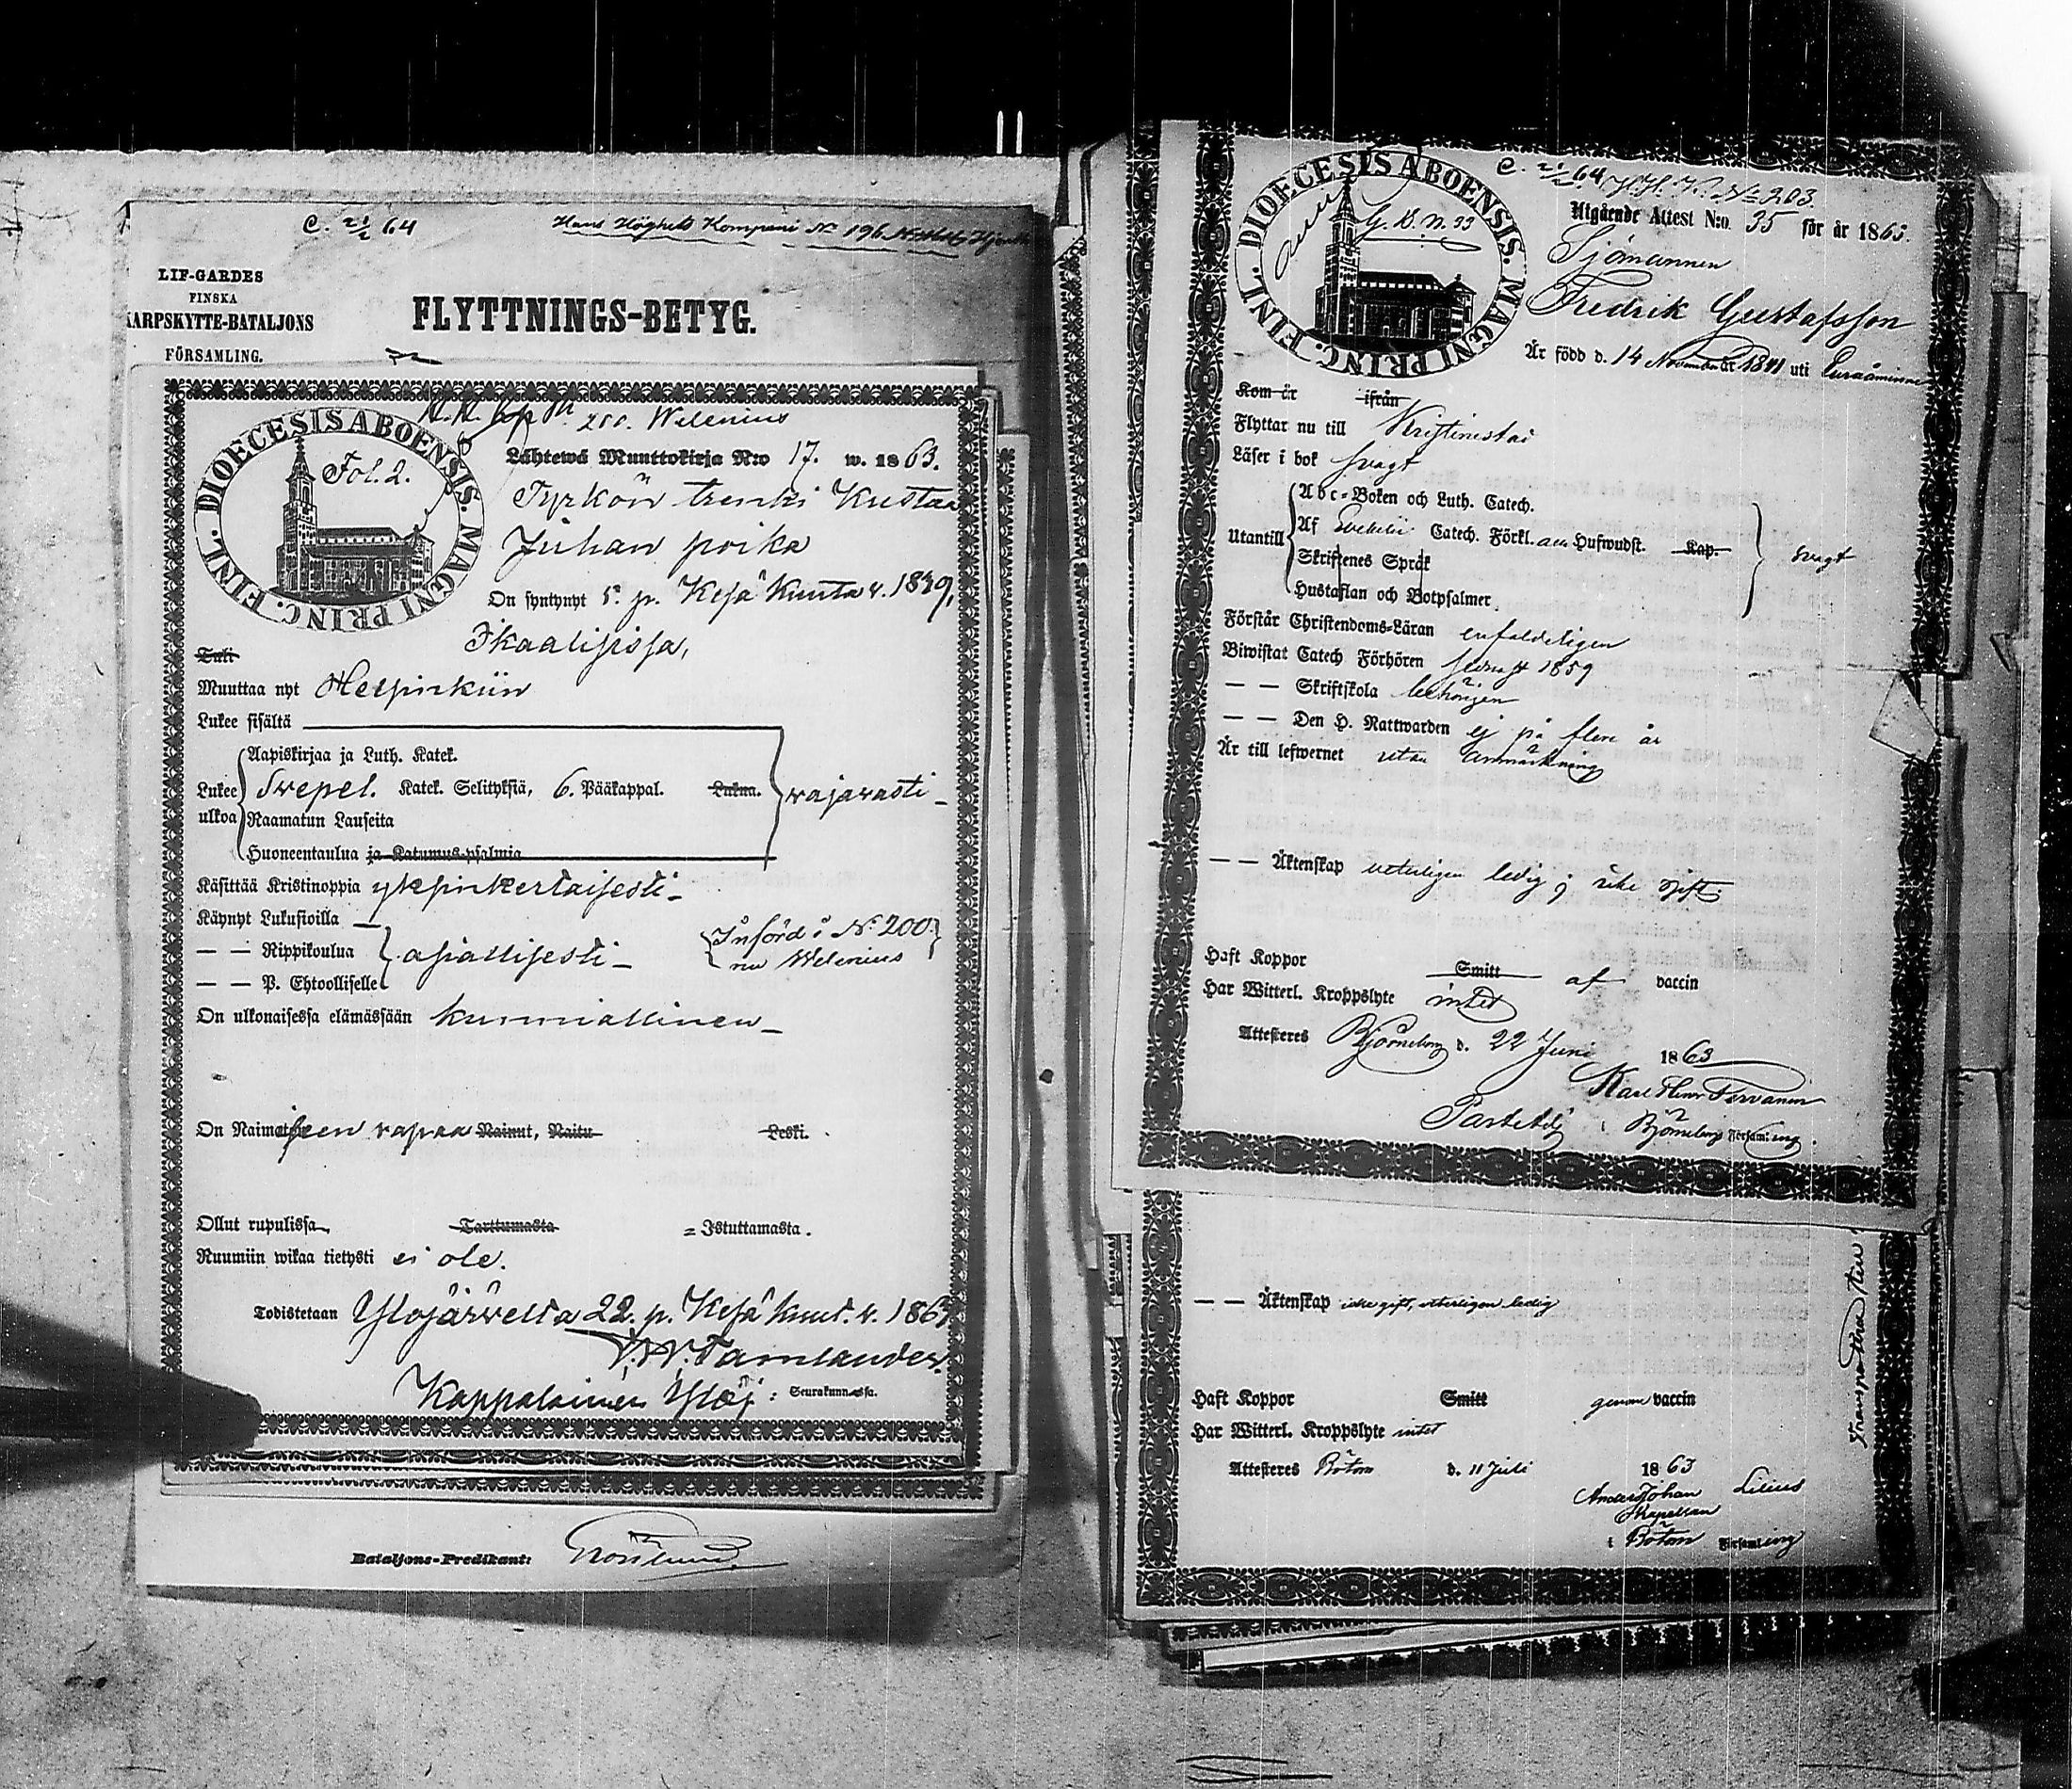 C. 21/2 64
Hans Höghets Kompani No 196
LIF-GARDES
FINSKA
SKARPSKYTTE-BATALJONS
FÖRSAMLING.
FLYTTNINGS-BETYG.
200. Welenius
DIOECESIS ABOENSIS. MAGNI PRINC. FINL.
Fol. 2.
Lähtewä Muuttokirja N:o 17. w. 1863.
Tyrkön trenki Kustaa
Juhan poika
On syntynyt 5. p. Kesä Kuuta v. 1839,
Ikaalisissa,
Tuli
Muuttaa nyt Helsinkiin
Lukee sisältä
Lukee ulkoa
Aapiskirjaa ja Luth. Katek.
Svepel. Katek. Selityksiä, 6. Pääkappal. Lukua.
Raamatun Lauseita
Huoneentaulua ja Katumus-psalmia
wajavasti
Käsittää Kristinoppia yksinkertaisesti
Käynyt Lukusioilla
— — Rippikoulua
— — P. Ehtoollisella
asiallisesti
Införd i No 200
nu Welenius
On ulkonaisessa elämässään kunniallinen
On Naimiseen vapaa Nainut, Naitu Leski.
Ollut rupulissa Tarttumasta = Istuttamasta.
Ruumiin wikaa tietysti ei ole.
Todistetaan Ylöjärvellä 22. p. Kesä kuut. v. 1863
Tamlander
Kappalainen Ylöj: Seurakunnassa.
Bataljons-Predikant:
C. 21/2 64
H. H. K. No 203
DIOECESIS ABOENSIS. MAGNI PRINC. FINL.
G. B. N. 33
Utgående Attest N:o 35 för år 1863.
Sjömannen
Fredrik Gustafsson
Är född d. 14 November år 1841 uti Euraåminne
Kom år ifrån
Flyttar nu till Kristinestad
Läser i bok svagt
Utantill
Abc-Boken och Luth. Catech.
Af Svebelii Catech. Förkl. Hufwudst. Kap.
Skriftenes Språk
Hustaflan och Botpsalmer
svagt
Förstår Christendoms-Läran enfaldeligen
Biwistat Catech Förhören sednast 1859
— — Skriftskola behörigen
— — Den H. Nattwarden ej på flere år
Är till lefwernet utan anmärkning
— — Äktenskap veterligen ledig; icke gift
Haft Koppor Smitt af vaccin
Har Witterl. Kroppslyte intet
Attesteres Björneborg d. 22 Juni 1863
Björneborgs Församling.
— — Äktenskap icke gift, veterligen ledig
Haft Koppor Smitt genom vaccin
Har Witterl. Kroppslyte intet
Attesteres Bötom d. 11 Juli 1863
Anders Johan Lilius
Kapellan
i Bötom Församling